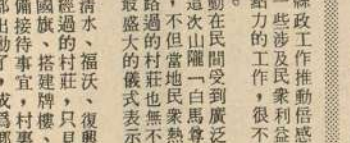 縣政工作推動倍感
一些涉及民衆利益
結力的工作，很不
。
動在民間受到廣泛
這次山隴「白馬尊
，不但當地民衆熱
路過的村莊也無不
最盛大的儀式表示
清水、福沃、復興
經過的村莊，只見
國旗、搭建牌樓、
備接待事宜，村事
部出動了，或爲鄉